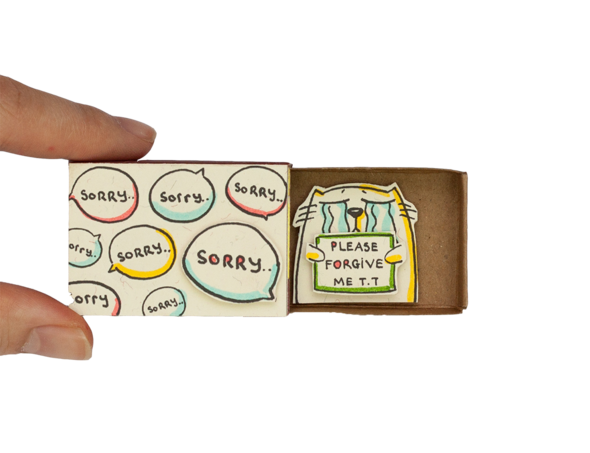 SORRY..
Sorry..
SORRY..
SORRY..
SORRY..
SORRY..
PLEASE
FORGIVE
ME T.T